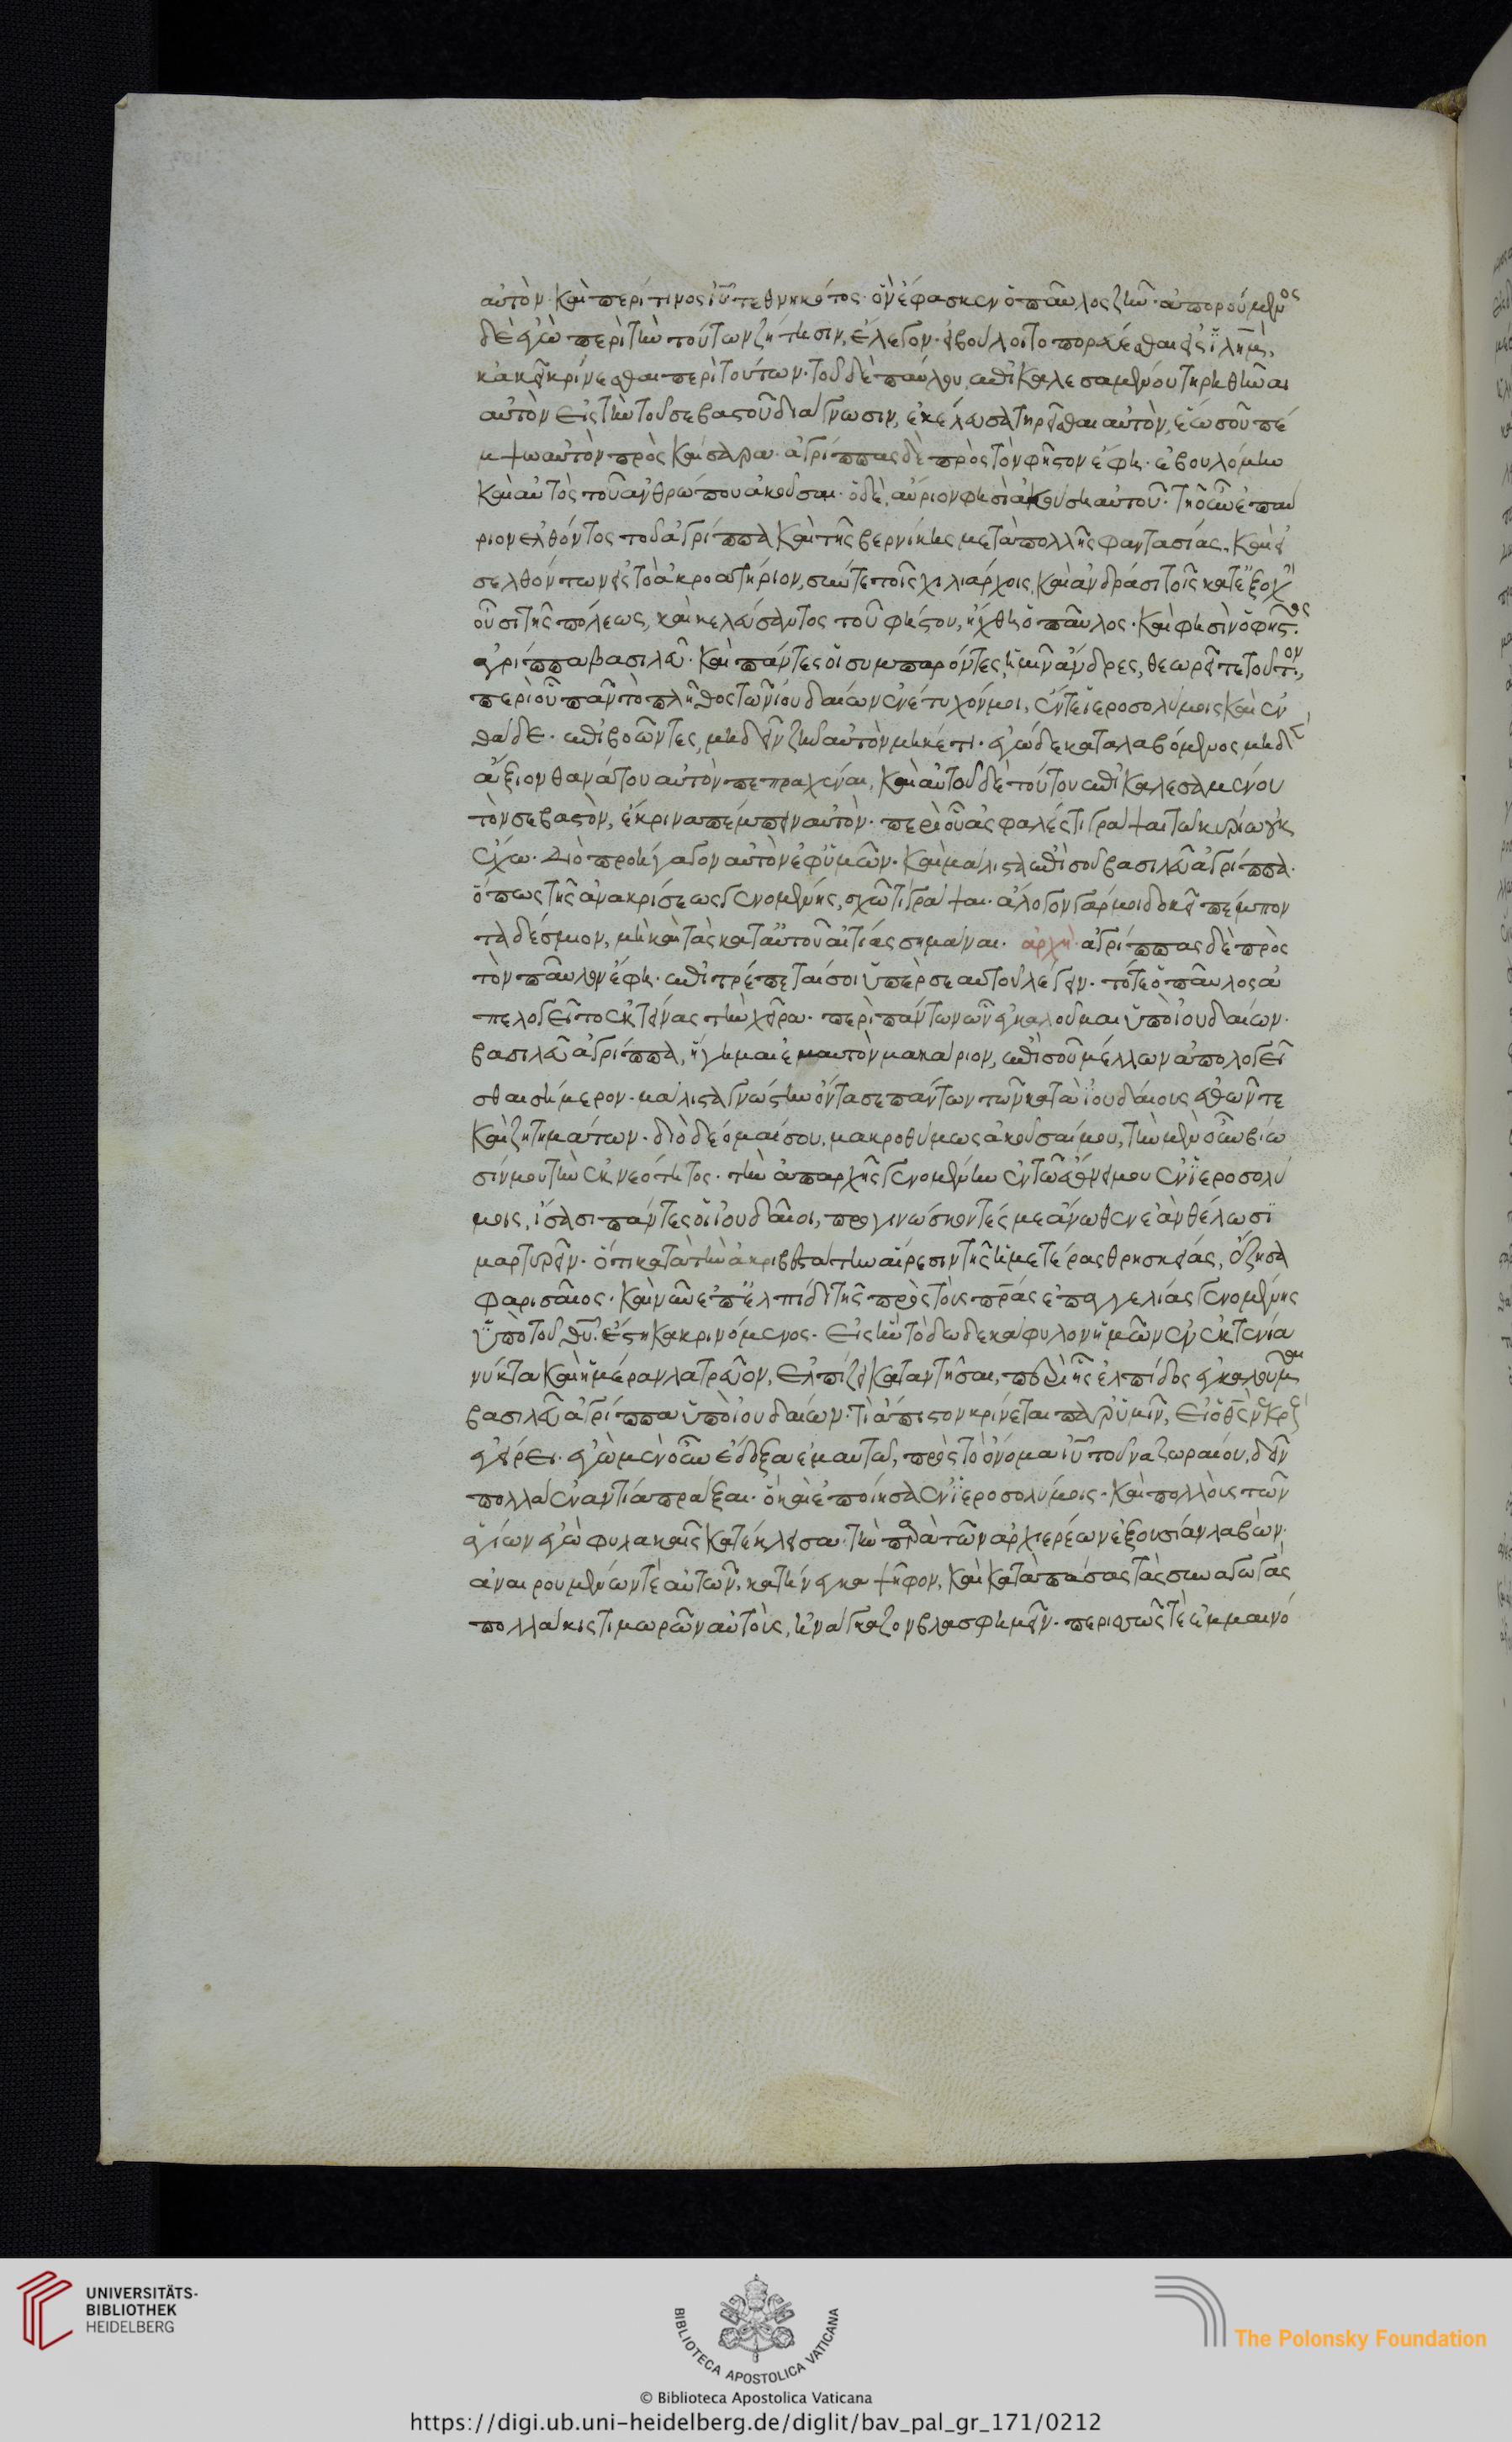 αὐτὸν· καὶ περί τινος ἰῦ τεθνηκότος· ὃν ἔφασκεν ὁ παῦλος ζῆν· ἀπορούμενος
δὲ ἐγὼ περὶ τὴν τούτων ζήτησιν, ἔλεγον· εἰ βούλοιτο πορεύεσθαι εἰς ἰλημ,
κἀκεῖ κρίνεσθαι περὶ τούτων· τοῦ δὲ παύλου ἐπικαλεσαμένου τηρηθῆναι
αὐτὸν εἰς τὴν τοῦ σεβαστοῦ διάγνωσιν, ἐκέλευσα τηρεῖσθαι αὐτὸν, ἕως οὗ πέ
μψω αὐτὸν πρὸς καίσαρα· ἀγρίππας δὲ πρὸς τὸν φῆστον ἔφη· ἐβουλόμην
καὶ αὐτὸς τοῦ ἀνθρώπου ἀκοῦσαι· ὁ δὲ, αὔριον φησὶ ἀκούσῃ αὐτοῦ· τῇ οὖν ἐπαύ
ριον ἐλθόντος τοῦ ἀγρίππα καὶ τῆς βερνίκης μετὰ πολλῆς φαντασίας, καὶ εἰ
σελθόντων εἰς τὸ ἀκροατήριον, σύν τε τοῖς χιλιάρχοις, καὶ ἀνδράσι τοῖς κατ ἐξοχὴν
οὖσι τῆς πόλεως, καὶ κελεύσαντος τοῦ φήστου, ἤχθη ὁ παῦλος· καὶ φησὶν ὁ φῆστος·
ἀγρίππα βασιλεῦ· καὶ πάντες οἱ συμπαρόντες ἡμῖν ἄνδρες, θεωρεῖτε τοῦτον,
περὶ οὗ πᾶν τὸ πλῆθος τῶν ἰουδαίων ἐνέτυχόν μοι, ἔν τε ἱεροσολύμοις καὶ ἐν
θάδε· ἐπιβοῶντες, μὴ δεῖν ζῆν αὐτὸν μηκέτι· ἐγὼ δὲ καταλαβόμενος μηδὲν
ἄξιον θανάτου αὐτὸν πεπραχέναι, καὶ αὐτοῦ δὲ τούτου ἐπικαλεσαμένου
τὸν σεβαστὸν, ἔκρινα πέμπειν αὐτὸν· περὶ οὗ ἀσφαλές τι γράψαι τῶ κυρίω οὐκ
ἔχω· διὸ προήγαγον αὐτὸν ἐφ ὑμῶν· καὶ μάλιστα ἐπὶ σοῦ βασιλεῦ ἀγρίππα·
ὅπως τῆς ἀνακρίσεως γενομένης, σχῶ τί γράψαι· ἄλογον γάρ μοι δοκεῖ πέμπον
τα δέσμιον, μὴ καὶ τὰς κατ αὐτοῦ αἰτίας σημᾶναι· ἀρχὴ· ἀγρίππας δὲ πρὸς
τὸν παῦλον ἔφη· ἐπιτρέπεταί σοι ὑπὲρ σεαυτοῦ λέγειν· τότε ὁ παῦλος ἀ
πελογεῖτο ἐκτείνας τὴν χεῖρα· περὶ πάντων ὧν ἐγκαλοῦμαι ὑπὸ ἰουδαίων·
βασιλεῦ ἀγρίππα, ἥγημαι ἐμαυτὸν μακάριον, ἐπὶ σοῦ μέλλων ἀπολογεῖ
σθαι σήμερον· μάλιστα γνώστην ὄντα σε πάντων τῶν κατὰ ἰουδαίους ἐθῶν τε
καὶ ζητημάτων· διὸ δέομαί σου, μακροθύμως ἀκοῦσαί μου, τὴν μὲν οὖν βίω
σίν μου τὴν ἐκ νεότητος· τὴν ἀπ ἀρχῆς γενομένην ἐν τῶ ἔθνει μου ἐν ἱεροσολύ
μοις, ἴσασι πάντες οἱ ἰουδαῖοι, προγινώσκοντές με ἄνωθεν ἐὰν θέλωσι
μαρτυρεῖν· ὅτι κατὰ τὴν ἀκριβεστάτην αἵρεσιν τῆς ἡμετέρας θρησκείας, ἔζησα
φαρισαῖος· καὶ νῦν ἐπ ἐλπίδι τῆς πρὸς τοὺς πρας ἐπαγγελίας γενομένης
ὑπὸ τοῦ θυ· ἕστηκα κρινόμενος· εἰς ἣν τὸ δωδεκάφυλον ἡμῶν ἐν ἐκτενία
νύκτα καὶ ἡμέραν λατρεῦον, ἐλπίζει καταντῆσαι, περὶ ἧς ἐλπίδος ἐγκαλοῦμαι
βασιλεῦ ἀγρίππα ὑπὸ ἰουδαίων· τί ἄπιστον κρίνεται παρ ὑμῖν, εἰ ὁ θς νεκροὺς
ἐγείρει· ἐγὼ μὲν οὖν ἔδοξα ἐμαυτῶ, πρὸς τὸ ὄνομα ἰυ τοῦ ναζωραίου, δεῖν
πολλὰ ἐναντία πρᾶξαι· ὃ καὶ ἐποίησα ἐν ἱεροσολύμοις· καὶ πολλοὺς τῶν
ἁγίων ἐγὼ φυλακαῖς κατέκλεισα· τὴν παρὰ τῶν ἀρχιερέων ἐξουσίαν λαβών·
ἀναιρουμένων τὲ αὐτῶν, κατήνεγκα ψῆφον, καὶ κατὰ πάσας τὰς συναγωγὰς
πολλάκις τιμωρῶν αὐτοὺς, ἠνάγκαζον βλασφημεῖν· περισσῶς τὲ ἐμμαινό
UNIVERSITÄTS-
BIBLIOTHEK
HEIDELBERG
BIBLIOTECA APOSTOLICA VATICANA
The Polonsky Foundation
© Biblioteca Apostolica Vaticana
https://digi.ub.uni-heidelberg.de/diglit/bav_pal_gr_171/0212